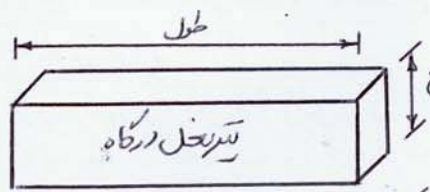 طول
تیر نعل درگاه